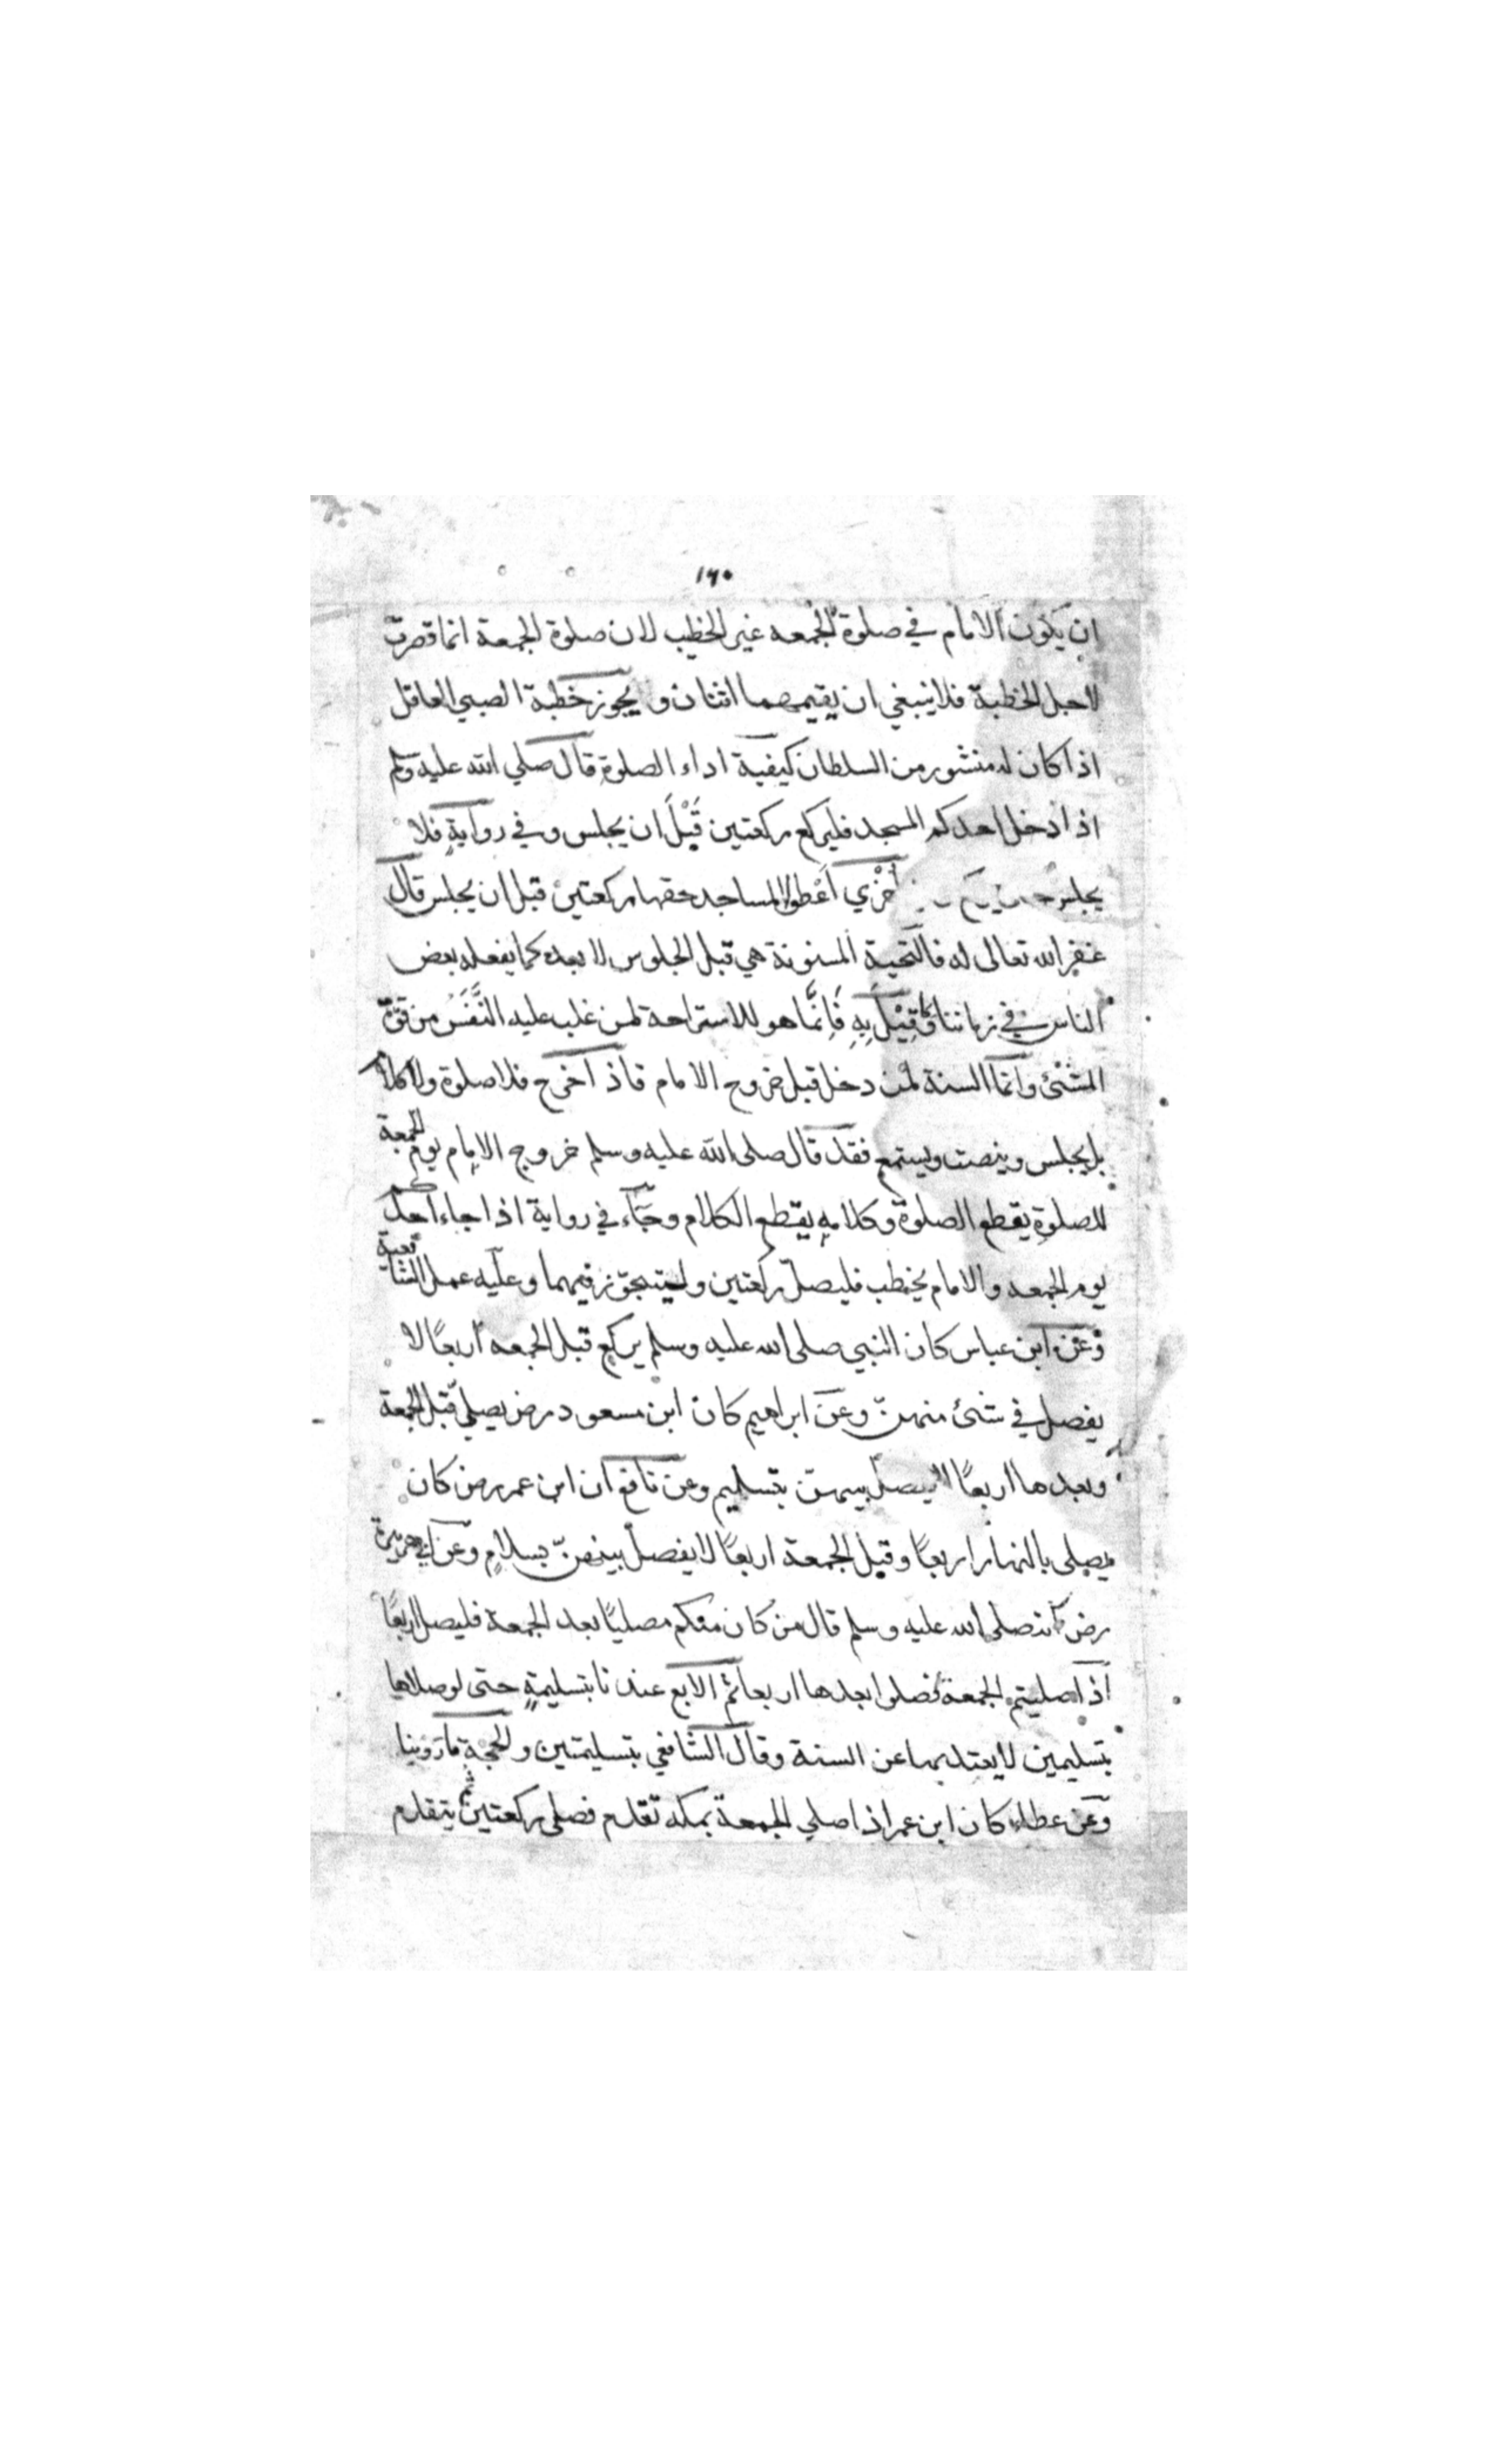 ١٦٠
ان يكون الامام في صلوة الجمعه غير الخطيب لان صلوة الجمعة انما قصرت
لاجل الخطبة فلا ينبغي ان يقيمهما اثنان و يجوز خطبة الصبي العاقل
اذا كان له منشور من السلطان كيفية اداء الصلوة قال صلي الله عليه وسلم
اذا دخل احدكم المسجد فليركع ركعتين قَبْلَ ان يجلس وفي روايةٍ فلا
يجلس اُخْرٰي اَعْطوا المساجد حقها ركعتين قبل ان يجلس قال
غفر الله تعالى له فالتحية المسنونة هي قبل الجلوس لا بعده كما يفعله بعض
الناس في زماننا وما قِيْلَ بِهِ فَاِنَّما هو للاستراحة لمن غلب عليه النَّفَسُ من قوّة
المشئ وانما السنة لمن دخل قبل خروج الامام فاذ اخرج فلا صلوة ولا كلام
بل يجلس وينصت ويستمع فقد قال صلى الله عليه وسلم خروج الامام يوم الجمعة
للصلوةِ يقطع الصلوة وكلامه يقطع الكلام وجَآء في رواية اذا جاء احدكم
يوم الجمعه والامام يخطب فليصلّ ركعتين وليتجوّز فيهما وعليه عمل الشافعية
وعن ابن عباس كان النبي صلى الله عليه وسلم يركع قبل الجمعه اربعًا لا
يفصل في شئ منهنّ وعن ابراهيم كان ابن مسعود رض يصلي قبل الجمعة
وبعدها اربعًا لا يفصل بينهنّ بتسليم وعن نافع ان ابن عمر رض كان
يصلى بالنهار اربعًا وقبل الجمعة اربعًا لا يفصل بينهنّ بسلامٍ وعن ابي هريرة
رض انه صلى الله عليه وسلم قال من كان منكم مصليًا بعد الجمعة فليصل اربعًا
اذا صليتم الجمعة فصلوا بعدها اربعا ثم الاربع عندنا بتسليمةٍ حتى لو صلاها
بتسليمين لا يعتد بها عن السنة وقال الشافعي بتسليمتين والحجة ما رَوَينا
وعن عطاء كان ابن عمر اذا صلي الجمعة بمكه تقدم فصلى ركعتين ثم يتقدم